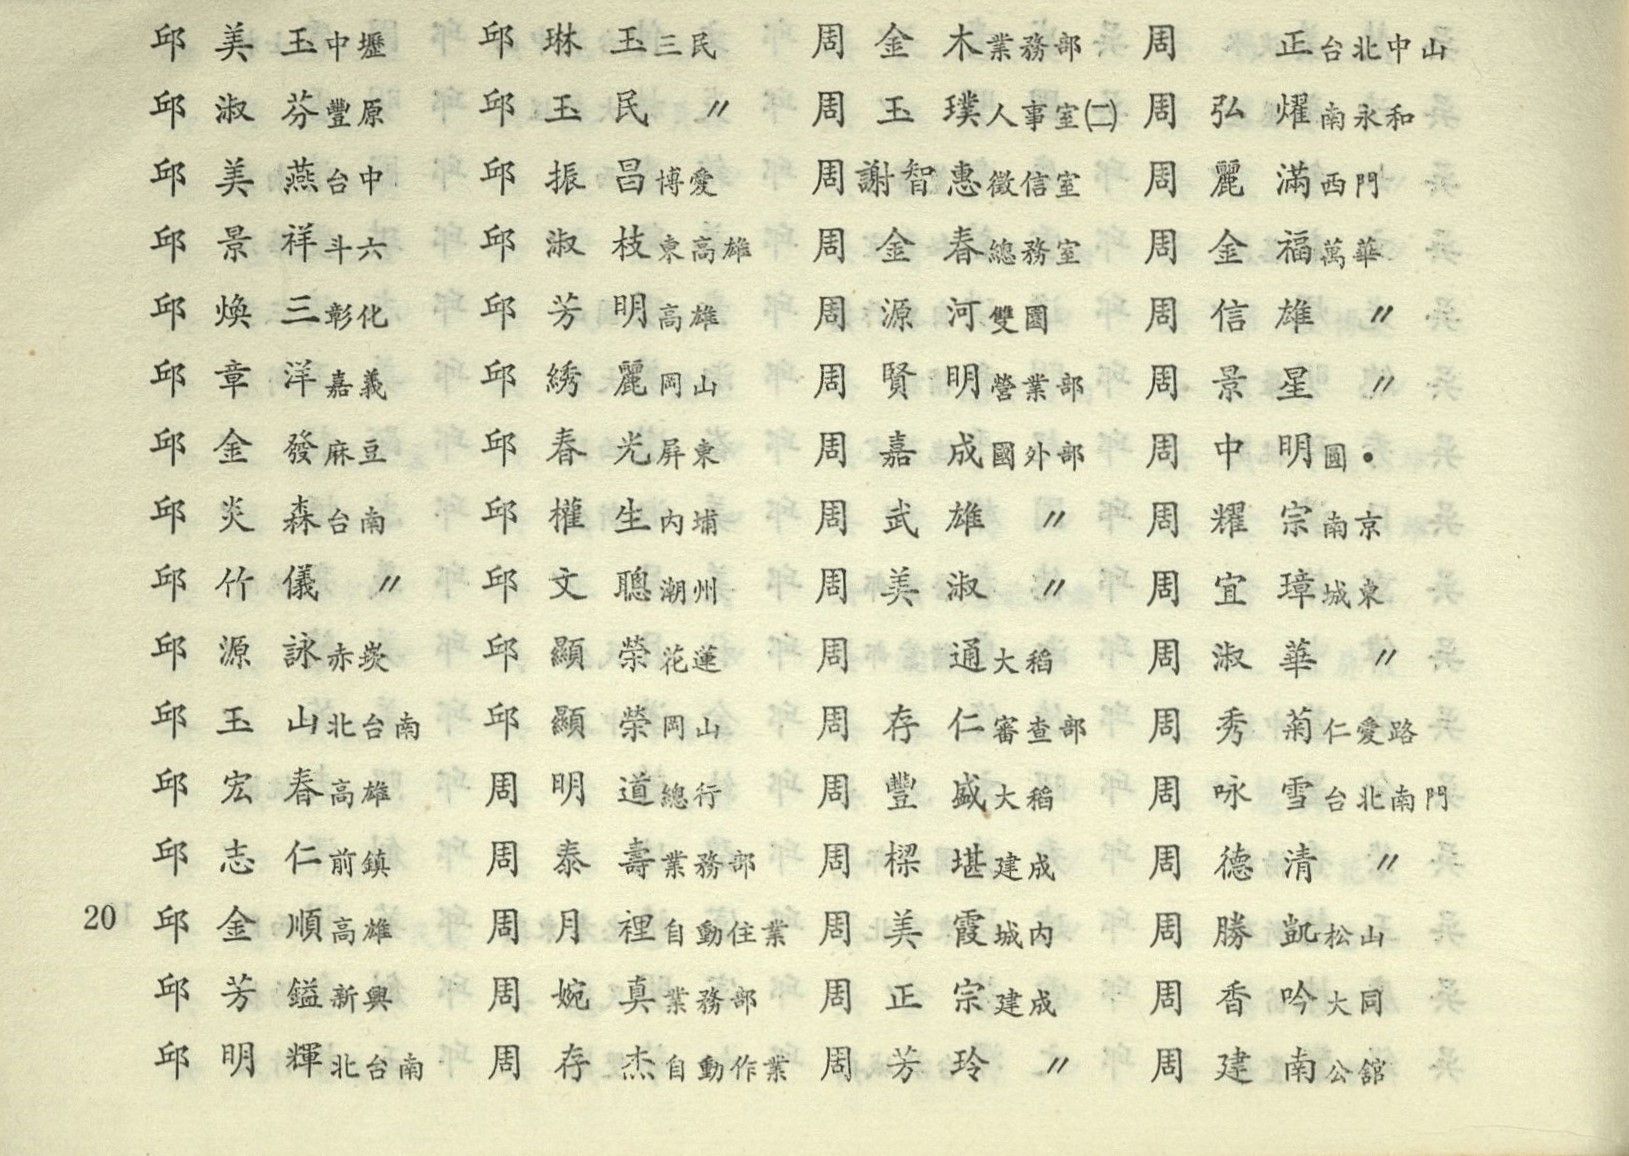 邱美玉中壢 邱琳玉三民 周金木業務部 周 正台北中山
邱淑芬豐原 邱玉民 〃 周玉璞人事室㈡ 周弘燿南永和
邱美燕台中 邱振昌博愛 周謝智惠徵信室 周麗滿西門
邱景祥斗六 邱淑枝東高雄 周金春總務室 周金福萬華
邱煥三彰化 邱芳明高雄 周源河雙園 周信雄 〃
邱章洋嘉義 邱綉麗岡山 周賢明營業部 周景星 〃
邱金發麻豆 邱春光屏東 周嘉成國外部 周中明圓•
邱炎森台南 邱權生內埔 周武雄 〃 周耀宗南京
邱竹儀 〃 邱文聰潮州 周美淑 〃 周宜璋城東
邱源詠赤崁 邱顯榮花蓮 周 通大稻 周淑華 〃
邱玉山北台南 邱顯榮岡山 周存仁審查部 周秀菊仁愛路
邱宏春高雄 周明道總行 周豐盛大稻 周咏雪台北南門
邱志仁前鎮 周泰壽業務部 周樑堪建成 周德清 〃
20 邱金順高雄 周月裡自動住業 周美霞城內 周勝凱松山
邱芳鎰新興 周婉真業務部 周正宗建成 周香吟大同
邱明輝北台南 周存杰自動作業 周芳玲 〃 周建南公館